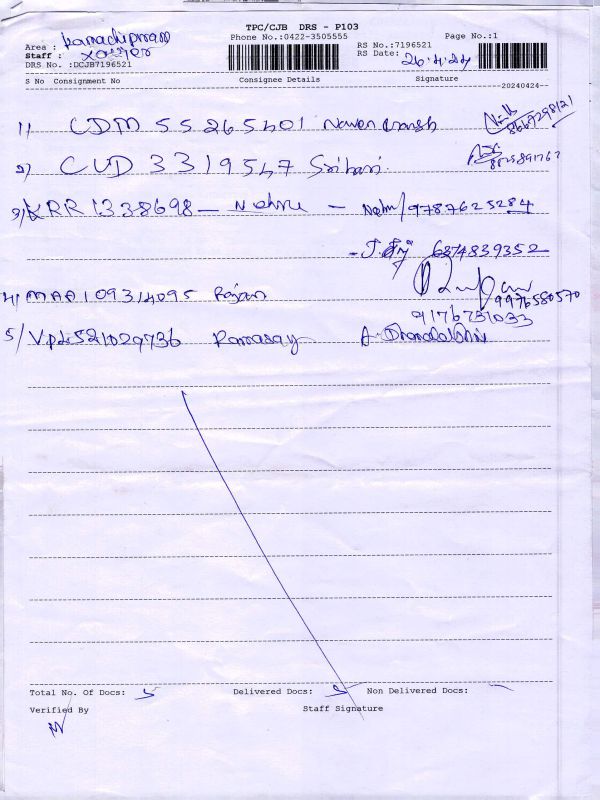 TPC/CJB DRS - P103
Phone No.:0422-3505555
Page No.:1
Area : Ramachipuram
RS No.:7196521
Staff : Xavier
RS Date: 26.4.24
DRS No. :DCJB7196521
S No Consignment No Consignee Details Signature
20240424
1) CDM 55265401 8667298121
2) CUD 3319547 Srihari
3) KRR 1338698 - Nehru - 9787625284
6374839352
4) MAA109314095 Rajan 9976580570
9176731033
5) VPL521029736 Ramasay
Total No. Of Docs: 5 Delivered Docs: 5 Non Delivered Docs: -
Verified By Staff Signature